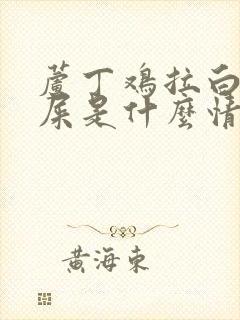 蘆丁鳮拉白
屎是什麼情
黃海東